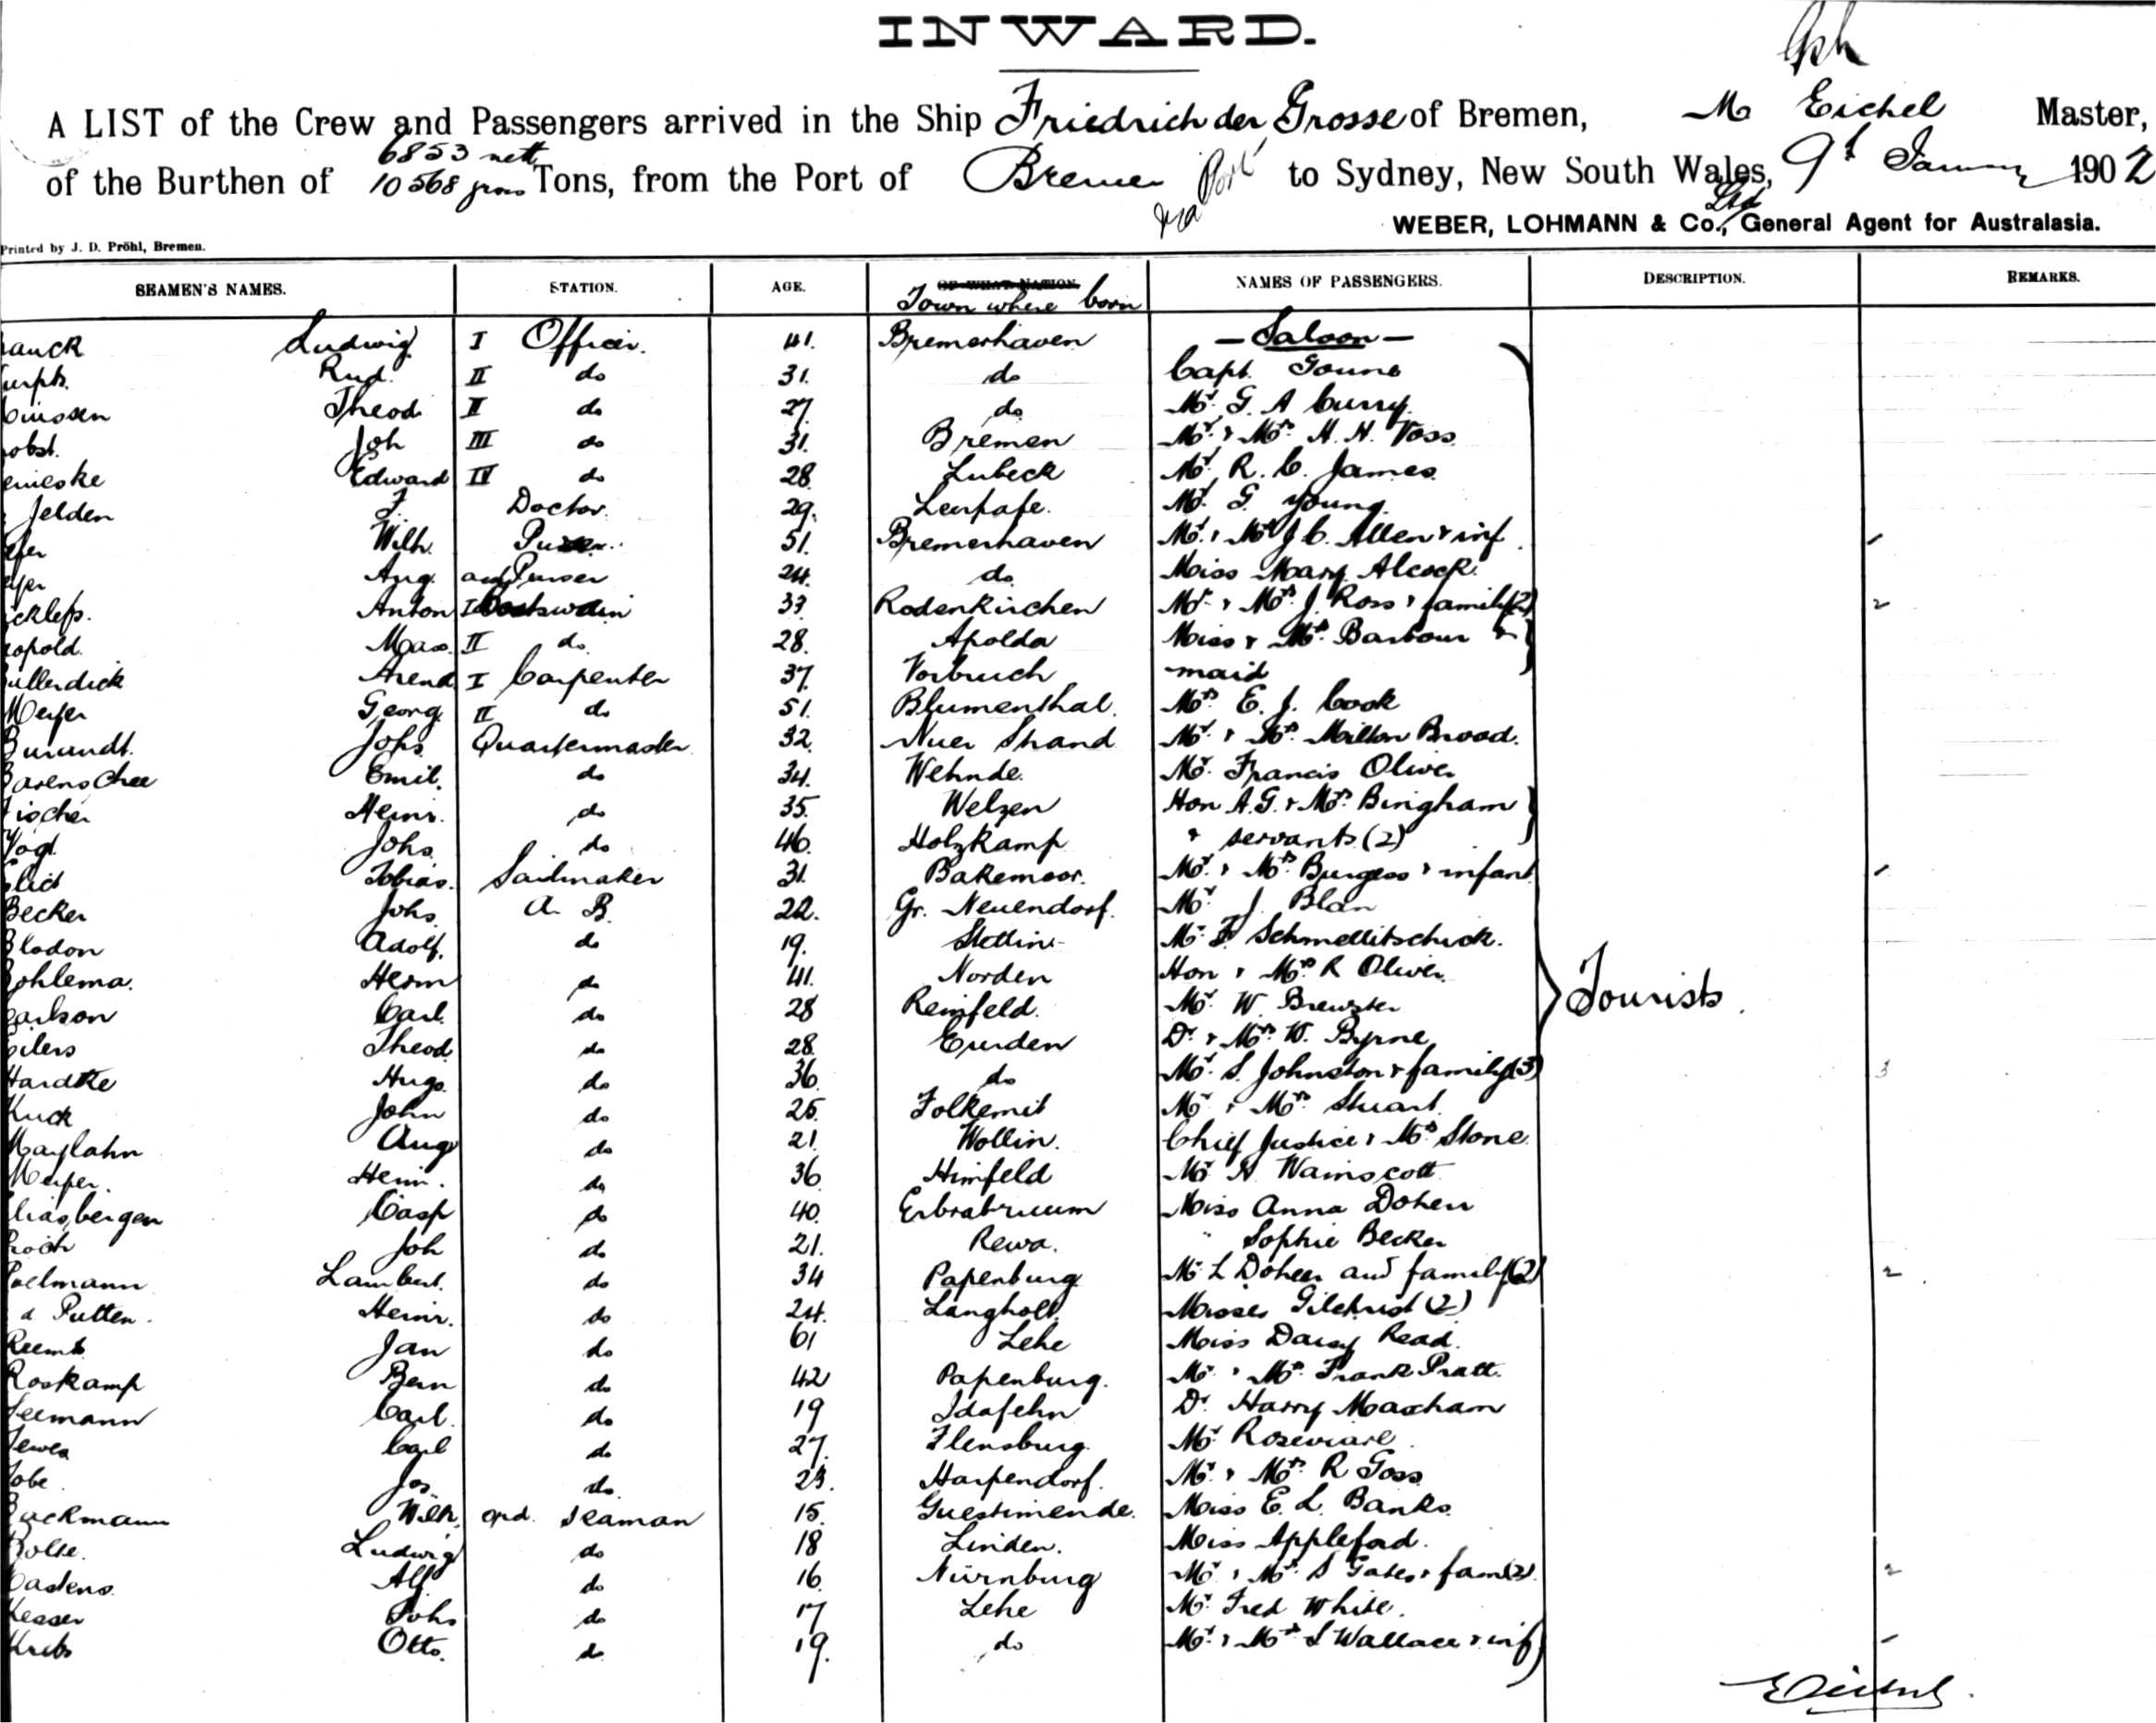 INWARD.
A LIST of the Crew and Passengers arrived in the Ship Friedrich der Grosse of Bremen, M Eichel Master,
6853 nett
of the Burthen of 10568 gross Tons, from the Port of Bremen via Port to Sydney, New South Wales, 9th January 1902
WEBER, LOHMANN & Co., Ltd General Agent for Australasia.
Printed by J. D. Pröhl, Bremen.
SEAMEN'S NAMES. STATION. AGE. OF WHAT NATION. Town where born NAMES OF PASSENGERS. DESCRIPTION. REMARKS.
anck Ludwig I Officer. 41. Bremerhaven — Saloon —
Rud. II do 31. do Capt.
Theod II do 27. do Mr. G. A Curry.
obst. Joh III do 31. Bremen Mr. & Mrs. H. H. Voss
emeske Edward IV do 28. Lubeck Mr. R. C. James
Jelden F Doctor. 29. Mr. G. Young.
Wilh. Purser. 51. Bremerhaven Mr. & Mrs J. C. Allen & inf.
Aug. Purser 24. do Miss Mary Alcock.
ickleps. Anton I Boatswain 33 Rodenkirchen Mr. & Mrs. J. Ross & family (2)
opold. Max. II do. 28. Apolda Miss & Mrs. Barbour &
ullerdick Arend I Carpenter 37. Vorbruch maid
Meyer Georg II do 51. Blumenthal. Mrs. E. J. Cook
Johs Quartermaster 32. Nuer Strand Mr. & Mrs. Milton Brood.
Emil. do 34. Wehnde. Mr. Francis Oliver
ischer Heinr. do 35. Welzen Hon A. G. & Mrs. Bingham
Vogt. Johs do 46. Holzkamp & servants (2)
Tobias. Sailmaker 31. Bakemoor. Mr. & Mrs. Burgess & infant
Becker Johs. A. B. 22. Gr. Neuendorf. Mr J. Blan
Blodon Adolf. do 19. Stettin Mr. F Schmellitschick.
ohlema. Herm do 41. Norden Hon & Mrs. R Oliver
arlson Carl. do 28 Reinfeld. Mr. W. Brewster Tourists.
Eilers Theod. do 28. Emden Dr. & Mrs. W. Byrne
Hardtke Hugo. do 36. do Mr. S. Johnston & family (3) 3
Kuck John do 25. Tolkemit Mr & Mrs. Stuart.
Maylahn Aug do 21. Wollin. Chief Justice & Mrs. Stone
Meyer. Heinr. do 36 Himfeld Mr H Wainscott
bergen Casp do 40. Miss Anna Dohen
Joh do 21. Rewa. " Sophie Becker
Poelmann Lambert. do 34 Papenburg Mr L Doheen and family (2) 2
d Putten. Heinr. do 24. Langholt. Misses Gilchrist (2)
Reemts Jan do 61 Lehe Miss Daisy Read.
Roskamp Bern do 42 Papenburg. Mr. & Mrs. Frank Pratt.
eemann Carl. do 19 Idafehn Dr. Harry Maxham
Tewes Carl do 27. Flensburg. Mr.
Tobe Jos. do. 23. Harpendorf. Mr. & Mrs. R Goss
ackmann Wilh. ord. Seaman 15. Guestimende. Miss E. L. Banks.
Bolte. Ludwig do 18 Linden. Miss Appleford.
Castens. Alf. do 16. Nürnburg Mr. & Mrs. S Gates & fam (2) 2
Kesser Johs do 17 Lehe Mr. Fred White.
Krebs Otto. do 19. do Mr. & Mrs S Wallace & inf
Eichel.